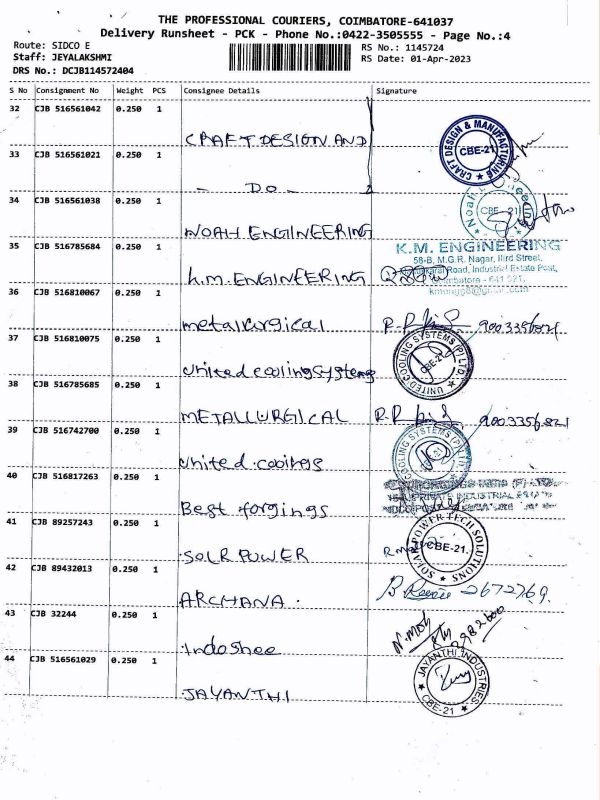 THE PROFESSIONAL COURIERS, COIMBATORE-641037
Delivery Runsheet - PCK - Phone No.:0422-3505555 - Page No.:4
Route: SIDCO E
RS No.: 1145724
Staff: JEYALAKSHMI
RS Date: 01-Apr-2023
DRS No.: DCJB114572404
S No Consignment No Weight PCS Consignee Details Signature
32 CJB 516561042 0.250 1
CRAFT DESIGN AND
CRAFT DESIGN & MANUFACTURING
CBE-21
33 CJB 516561021 0.250 1
- DO -
Noah Engineering
CBE - 21
34 CJB 516561038 0.250 1
NOAH ENGINEERING
35 CJB 516785684 0.250 1
K.M. ENGINEERING
58-B, M.G.R. Nagar, IIIrd Street,
Road, Industrial Estate Post,
Coimbatore - 641 021.
K.M. ENGINEERING
36 CJB 516810067 0.250 1
metallurgical R.P
37 CJB 516810075 0.250 1
united cooling systems
UNITED COOLING SYSTEMS (P) LTD.
CBE-21
38 CJB 516785685 0.250 1
METALLURGICAL R.P 9003356821
39 CJB 516742700 0.250 1
united. coolings
COOLING SYSTEMS (P)
40 CJB 516817263 0.250 1
Best forgings
PRIVATE INDUSTRIAL
41 CJB 89257243 0.250 1
SOLR POWER
SOLAR POWER TECH SOLUTIONS
CBE-21.
42 CJB 89432013 0.250 1
ARCHANA. B 2672769.
43 CJB 32244 0.250 1
Indoshee
44 CJB 516561029 0.250 1
JAYANTHI
JAYANTHI INDUSTRIES
CBE-21